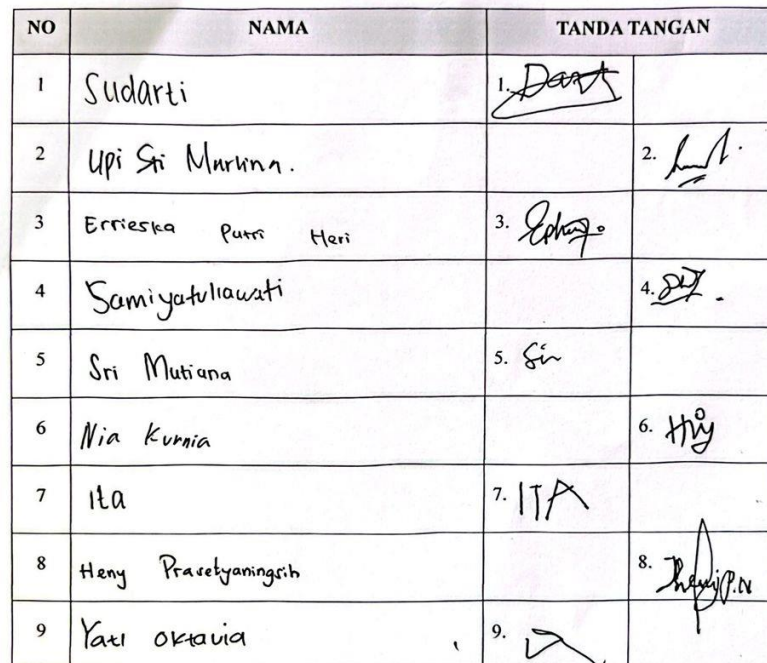 NO NAMA TANDA TANGAN
1 Sudarti 1.
2 Upi Sri Murlina. 2.
3 Errieska Putri Heri 3.
4 Samiyatuliawati 4.
5 Sri Mutiana 5. Sin
6 Nia Kurnia 6.
7 Ita 7. ITA
8 Heny Prasetyaningsih 8.
9 Yati Oktavia 9.